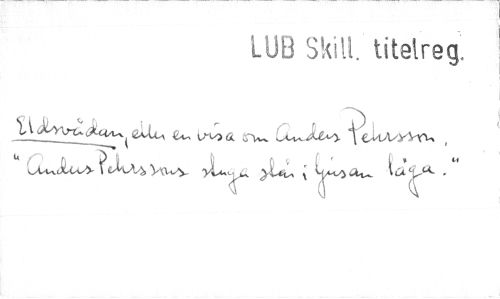 LUB Skill. titelreg.
Eldsvådan, eller en visa om Anders Pehrsson.
"Anders Pehrssons stuga står i ljusan låga."